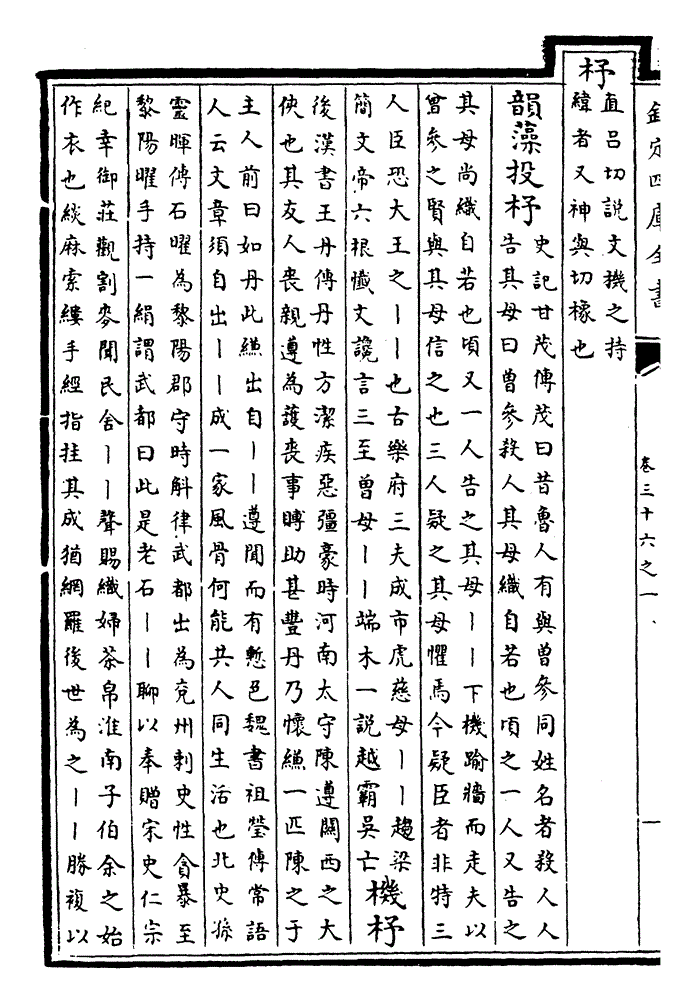 欽定四庫全書
卷三十六之一
一
杼
直呂切說文機之持
緯者又神與切橡也
韻藻投杼
史記甘茂傳茂曰昔魯人有與曾參同姓名者殺人人
告其母曰曾參殺人其母織自若也頃之一人又告之
其母尚織自若也頃又一人告之其母丨丨下機踰牆而走夫以
曾參之賢與其母信之也三人疑之其母懼焉今疑臣者非特三
人臣恐大王之丨丨也古樂府三夫成市虎慈母丨丨趨梁
簡文帝六根懺文讒言三至曾母丨丨端木一說越霸吳亡
機杼
後漢書王丹傳丹性方潔疾惡彊豪時河南太守陳遵關西之大
俠也其友人喪親遵為護喪事賻助甚豐丹乃懷縑一匹陳之于
主人前曰如丹此縑出自丨丨遵聞而有慙色魏書祖瑩傳常語
人云文章須自出丨丨成一家風骨何能共人同生活也北史孫
靈暉傳石曜為黎陽郡守時斛律武都出為兖州刺史性貪暴至
黎陽曜手持一絹謂武都曰此是老石丨丨聊以奉贈宋史仁宗
紀幸御莊觀割麥聞民舍丨丨聲賜織婦茶帛淮南子伯余之始
作衣也緂麻索縷手經指挂其成猶網羅後世為之丨丨勝複以